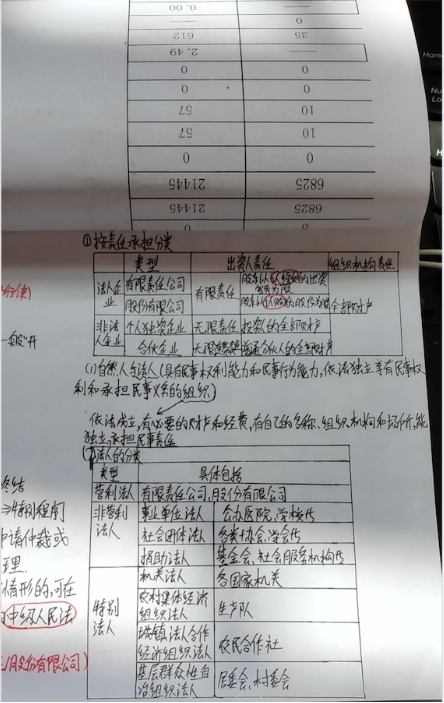 0.00
—
612
35
2.49
—
0
0
0
0
57
10
57
10
0
0
21445
6825
21445
6825
①按责任承担分类
类型 出资人责任 组织机构责任
法人企业 有限责任公司 有限责任 股东以认缴的出资额为限 全部财产
股份有限公司 股东以认购的股份为限
非法人企业 个人独资企业 无限责任 投资人的全部财产
合伙企业 无限 普通合伙人的全部财产
(1)自然人与法人(具有民事权利能力和民事行为能力,依法独立享有民事权
利和承担民事义务的组织。)
依法成立,有必要的财产和经费,有自己的名称、组织机构和场所,能
独立承担民事责任
法人的分类
类型 具体包括
营利法人 有限责任公司,股份有限公司
非营利法人 事业单位法人 公办医院,学校代
社会团体法人 各类协会,学会代
捐助法人 基金会,社会服务机构代
特别法人 机关法人 各国家机关
农村集体经济组织法人 生产队
城镇 法合作经济组织法人 农民合作社
基层群众性自治组织法人 居委会,村委会
一般"开
终结
特别程序
申请仲裁或
理
情形的,可在
中级人民法
股份有限公司)